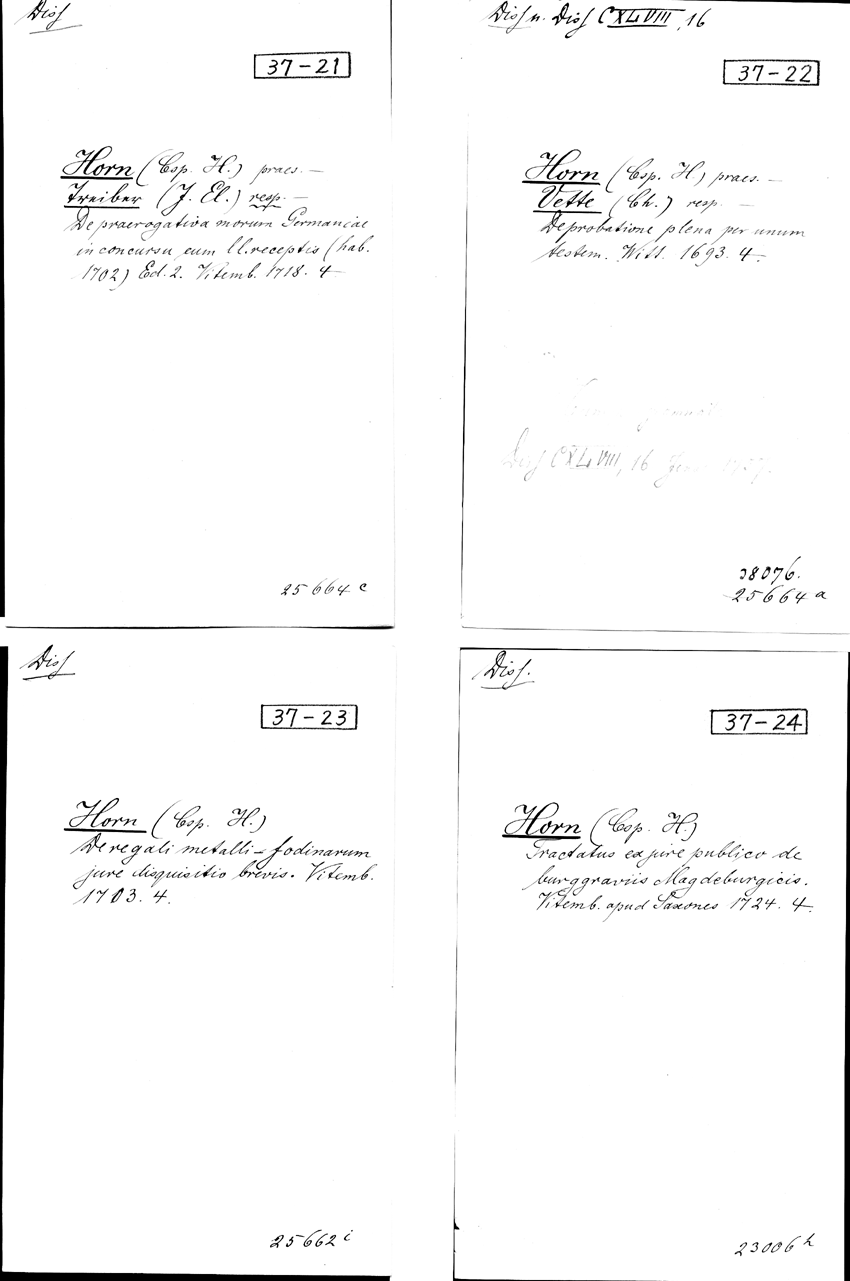 Diss
37-21
Horn (Csp. H.) praes. —
Treiber (J. El.) resp. —
De praerogativa morum Germaniae
in concursu cum ll. receptis (hab.
1702) Ed. 2. Vitemb. 1718. 4
25664 c
Diss u. Diss CXLVIII, 16
37-22
Horn (Csp. H) praes. —
Vette (Ch.) resp. —
De probatione plena per unum
testem. Witt. 1693. 4.
Diss CXLVIII, 16
38076.
25664 a
Diss
37-23
Horn (Csp. H.)
De regali metalli-fodinarum
jure disquisitio brevis. Vitemb.
1703. 4.
25662 i
Diss.
37-24
Horn (Csp. H.)
Tractatus ex jure publico de
burggraviis Magdeburgicis.
Vitemb. apud Saxones 1724. 4.
23006 h